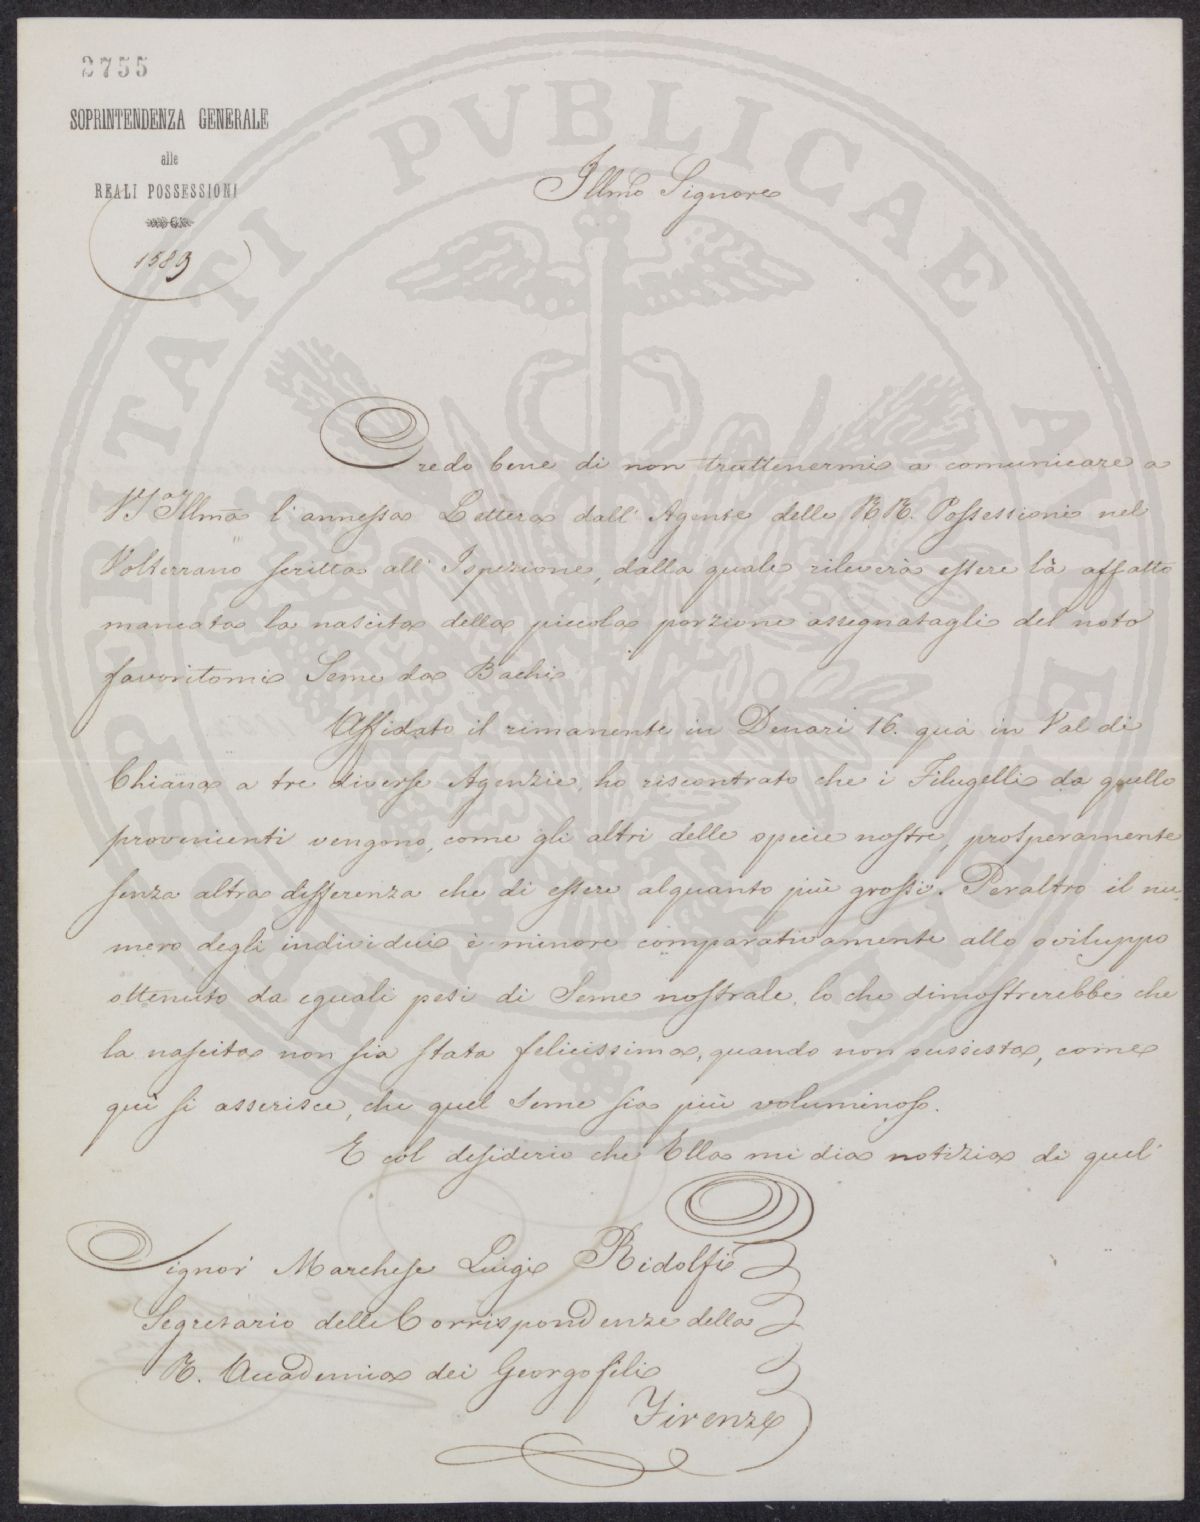 2755
SOPRINTENDENZA GENERALE
alle
REALI POSSESSIONI
1583
Illmo Signore
Credo bene di non trattenermi a comunicare a
VS Illma l'annessa Lettera dall' Agente delle RR. Possessioni nel
Volterrano scritta all' Ispezione, dalla quale rileverà essere là affatto
mancata la nascita della piccola porzione assegnatagli del noto
favoritomi Seme da Bachi
Affidato il rimanente in Denari 16. quà in Val di
Chiana a tre diverse Agenzie, ho riscontrato che i Filugelli da quello
provenienti vengono, come gli altri delle specie nostre, prosperamente
senza altra differenza che di essere alquanto più grossi. Peraltro il nu-
mero degli individui è minore comparativamente allo sviluppo
ottenuto da eguali pesi di Seme nostrale, lo che dimostrerebbe che
la nascita non sia stata felicissima, quando non sussista, come
quì si asserisce, che quel Seme sia più voluminoso.
E col desiderio che Ella mi dia notizia di quel
Signor Marchese Luigi Ridolfi
Segretario delle Corrispondenze della
R. Accademia dei Georgofili
Firenze
PROSPERITATI PVBLICAE AVGENDAE